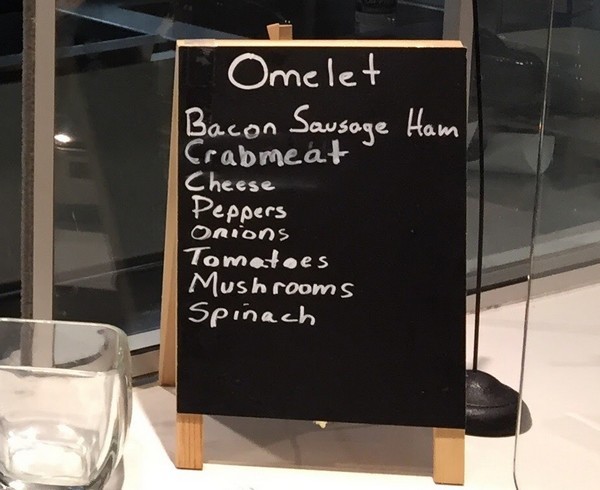 Omelet
Bacon Sausage Ham
Crabmeat
Cheese
Peppers
Onions
Tomatoes
Mushrooms
Spinach